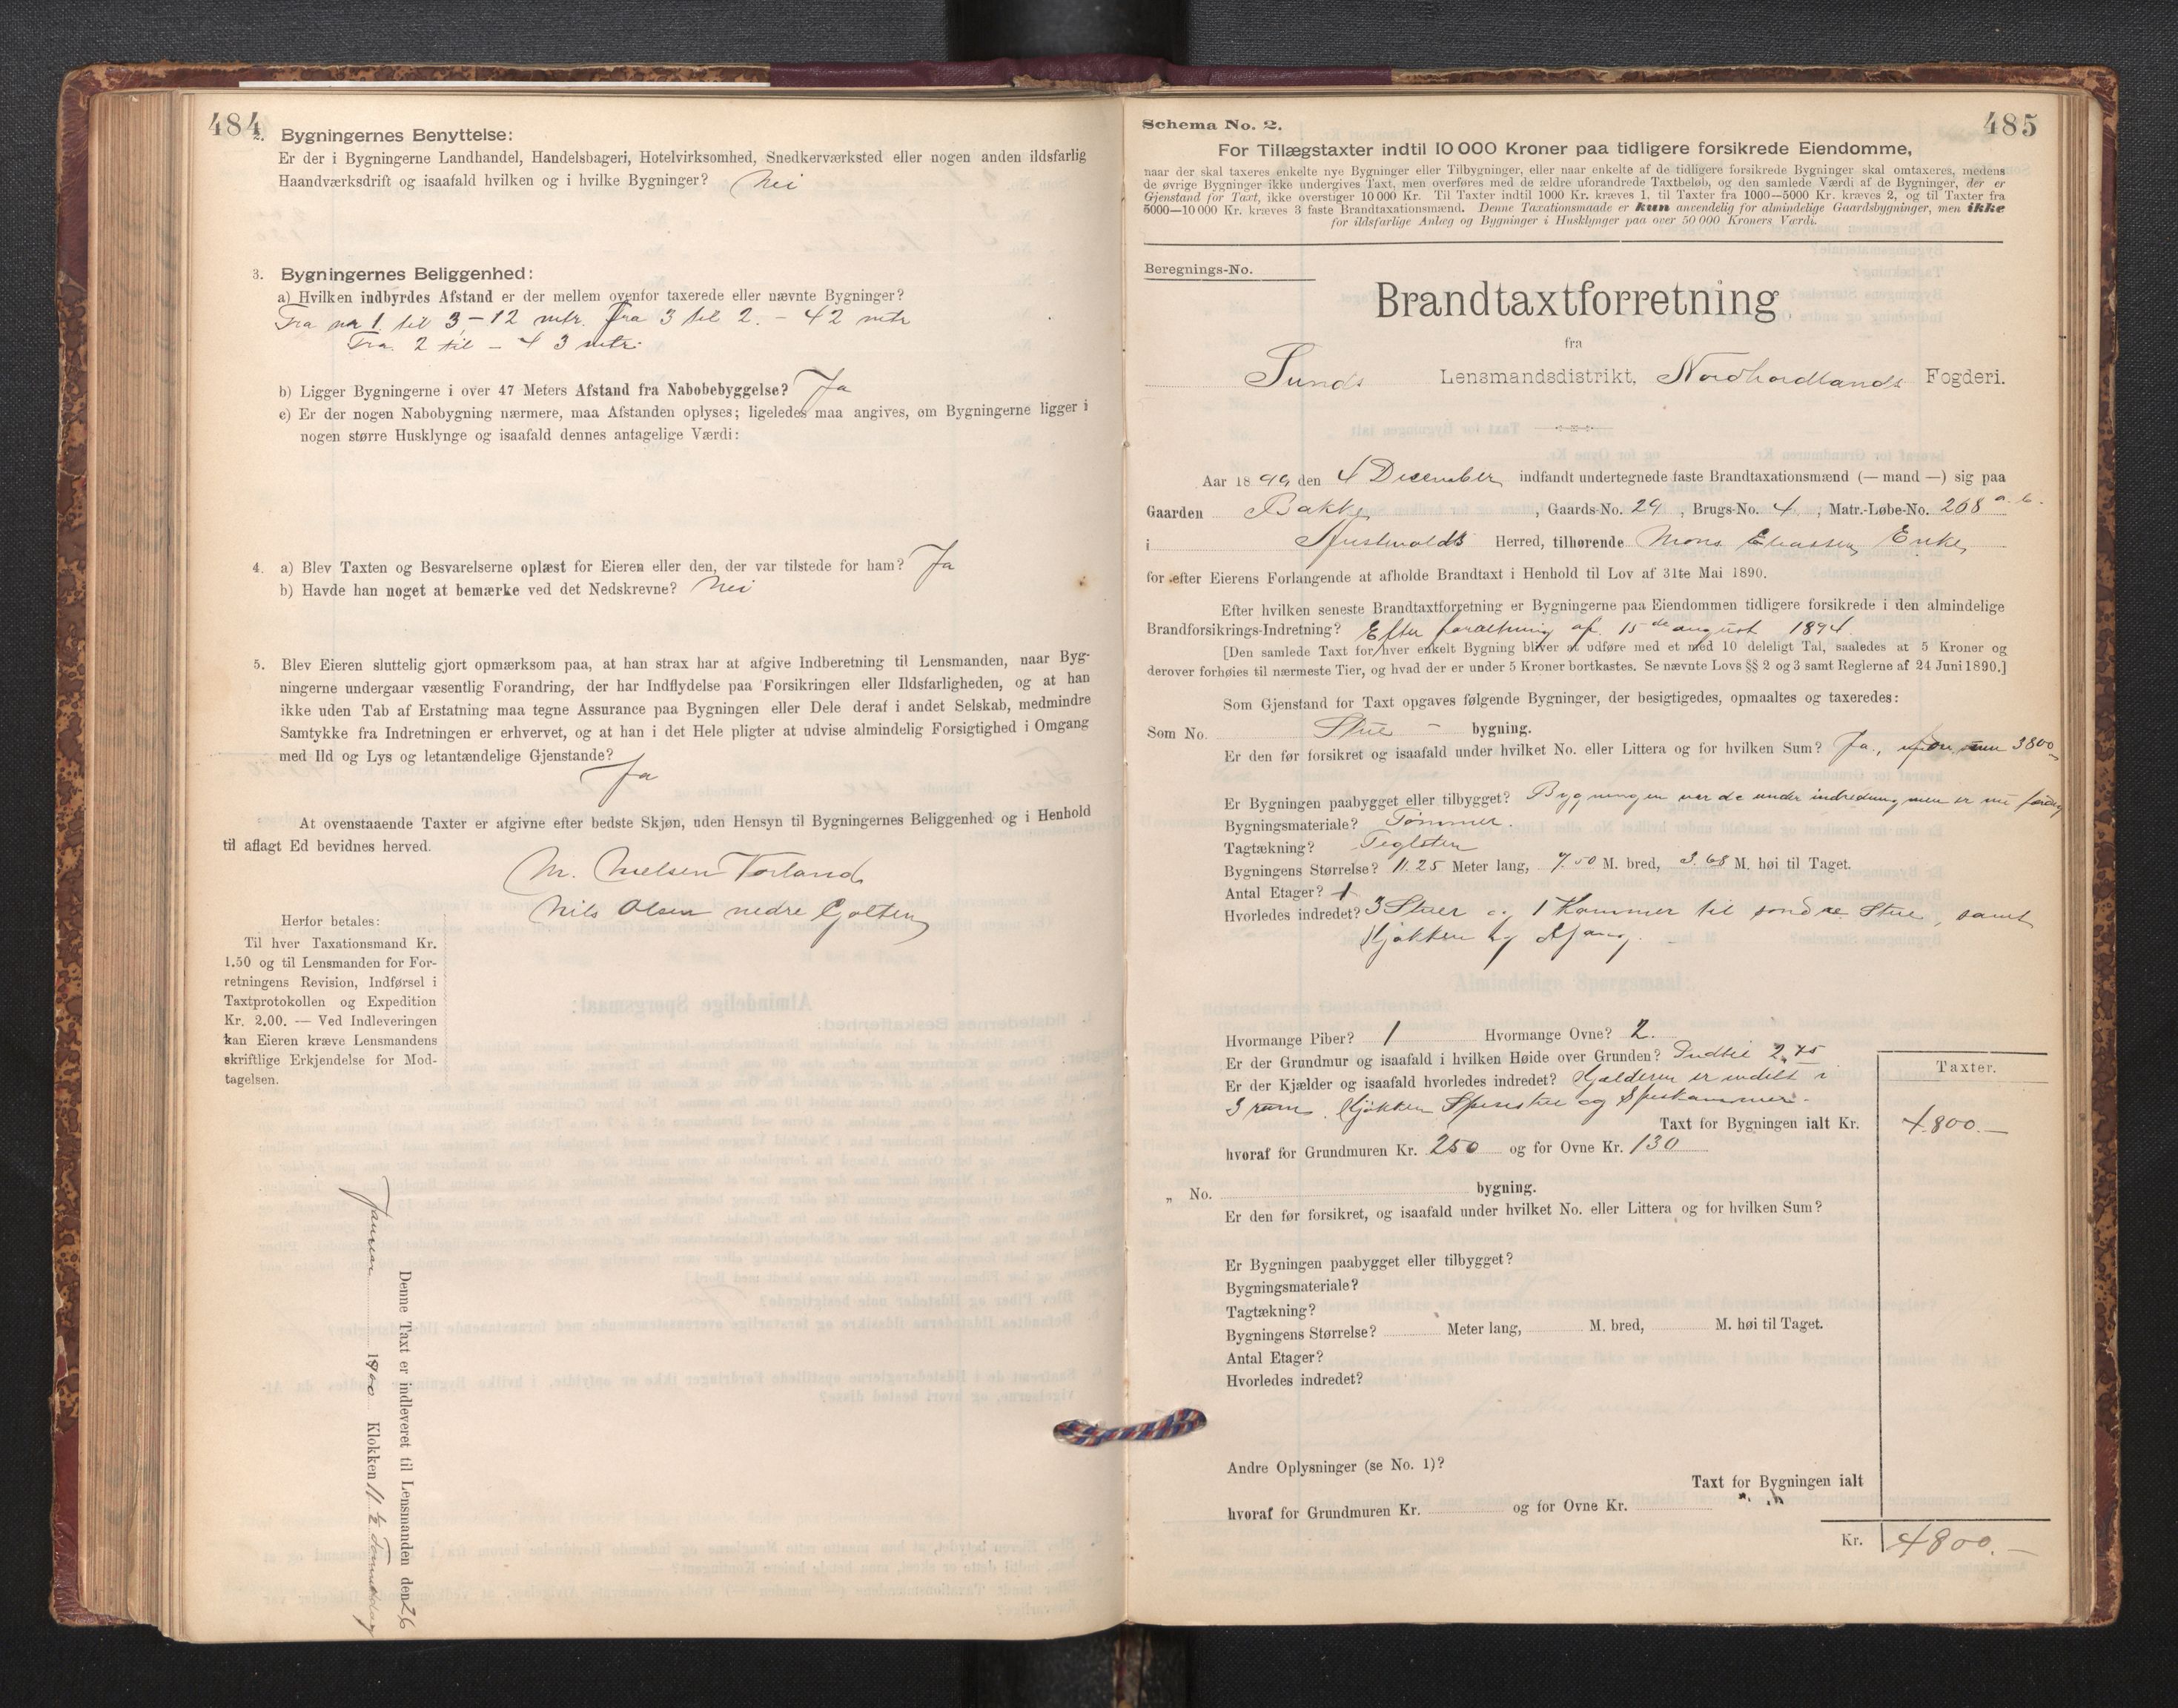 484
2. Bygningernes Benyttelse:
Er der i Bygningerne Landhandel, Handelsbageri, Hotelvirksomhed, Snedkerværksted eller nogen anden ildsfarlig
Haandværksdrift og isaafald hvilken og i hvilke Bygninger? Nei
3. Bygningernes Beliggenhed:
a) Hvilken indbyrdes Afstand er der mellem ovenfor taxerede eller nævnte Bygninger?
Fra nr 1 til 3 - 12 mtr. fra 3 til 2. - 42 mtr
Fra 2 til - 4 3 mtr.
b) Ligger Bygningerne i over 47 Meters Afstand fra Nabobebyggelse? Ja
c) Er der nogen Nabobygning nærmere, maa Afstanden oplyses; ligeledes maa angives, om Bygningerne ligger i
nogen større Husklynge og isaafald dennes antagelige Værdi:
4. a) Blev Taxten og Besvarelserne oplæst for Eieren eller den, der var tilstede for ham? Ja
b) Havde han noget at bemærke ved det Nedskrevne? Nei
5. Blev Eieren sluttelig gjort opmærksom paa, at han strax har at afgive Indberetning til Lensmanden, naar Byg-
ningerne undergaar væsentlig Forandring, der har Indflydelse paa Forsikringen eller Ildsfarligheden, og at han
ikke uden Tab af Erstatning maa tegne Assurance paa Bygningen eller Dele deraf i andet Selskab, medmindre
Samtykke fra Indretningen er erhvervet, og at han i det Hele pligter at udvise almindelig Forsigtighed i Omgang
med Ild og Lys og letantændelige Gjenstande?
Ja
At ovenstaaende Taxter er afgivne efter bedste Skjøn, uden Hensyn til Bygningernes Beliggenhed og i Henhold
til aflagt Ed bevidnes herved.
M. Nielsen Vorland
Nils Olsen nedre Golten
Herfor betales:
Til hver Taxationsmand Kr.
1.50 og til Lensmanden for For-
retningens Revision, Indførsel i
Taxtprotokollen og Expedition
Kr. 2.00. — Ved Indleveringen
kan Eieren kræve Lensmandens
skriftlige Erkjendelse for Mod-
tagelsen.
Denne Taxt er indleveret til Lensmanden den 26
Januar 1900 Klokken 11 1/2 Formiddag
485
Schema No. 2.
For Tillægstaxter indtil 10 000 Kroner paa tidligere forsikrede Eiendomme,
naar der skal taxeres enkelte nye Bygninger eller Tilbygninger, eller naar enkelte af de tidligere forsikrede Bygninger skal omtaxeres, medens
de øvrige Bygninger ikke undergives Taxt, men overføres med de ældre uforandrede Taxtbeløb, og den samlede Værdi af de Bygninger, der er
Gjenstand for Taxt, ikke overstiger 10 000 Kr. Til Taxter indtil 1000 Kr. kræves 1, til Taxter fra 1000—5000 Kr. kræves 2, og til Taxter fra
5000—10 000 Kr. kræves 3 faste Brandtaxationsmænd. Denne Taxationsmaade er kun anvendelig for almindelige Gaardsbygninger, men ikke
for ildsfarlige Anlæg og Bygninger i Husklynger paa over 50 000 Kroners Værdi.
Beregnings-No.
Brandtaxtforretning
fra
Sunds Lensmandsdistrikt, Nordhordlands Fogderi.
Aar 1899 den 4 December indfandt undertegnede faste Brandtaxationsmænd (— mand —) sig paa
Gaarden Bakke, Gaards-No. 29, Brugs-No. 4, Matr.-Løbe-No. 268 a. b.
i Austevolds Herred, tilhørende Mons Eliassen
for efter Eierens Forlangende at afholde Brandtaxt i Henhold til Lov af 31te Mai 1890.
Efter hvilken seneste Brandtaxtforretning er Bygningerne paa Eiendommen tidligere forsikrede i den almindelige
Brandforsikrings-Indretning? Efter forretning af 15de august 1894.
[Den samlede Taxt for hver enkelt Bygning bliver at udføre med et med 10 deleligt Tal, saaledes at 5 Kroner og
derover forhøies til nærmeste Tier, og hvad der er under 5 Kroner bortkastes. Se nævnte Lovs §§ 2 og 3 samt Reglerne af 24 Juni 1890.]
Som Gjenstand for Taxt opgaves følgende Bygninger, der besigtigedes, opmaaltes og taxeredes:
Som No. Stue - bygning.
Er den før forsikret og isaafald under hvilket No. eller Littera og for hvilken Sum? Ja, 3800
Er Bygningen paabygget eller tilbygget? Bygningen var da under indredning men er nu færdig
Bygningsmateriale? Tømmer.
Tagtækning? Teglsten
Bygningens Størrelse? 11.25 Meter lang, 7.50 M. bred, 3.68 M. høi til Taget.
Antal Etager? 1
Hvorledes indredet? 3 Stuer og 1 Kammer til søndre Stue, samt
Kjøkken og Gang.
Hvormange Piber? 1 Hvormange Ovne? 2.
Er der Grundmur og isaafald i hvilken Høide over Grunden? Indtil 2,75
Er der Kjælder og isaafald hvorledes indredet? Kjælderen er indelt i
3 rum. Kjøkken Spisestue og Spiskammer.
Taxter.
Taxt for Bygningen ialt Kr. 4800.—
hvoraf for Grundmuren Kr. 250 og for Ovne Kr. 130
„ No. bygning.
Er den før forsikret, og isaafald under hvilket No. eller Littera og for hvilken Sum?
Er Bygningen paabygget eller tilbygget?
Bygningsmateriale?
Tagtækning?
Bygningens Størrelse? Meter lang, M. bred, M. høi til Taget.
Antal Etager?
Hvorledes indredet?
Andre Oplysninger (se No. 1)?
Taxt for Bygningen ialt
hvoraf for Grundmuren Kr. og for Ovne Kr.
Kr. 4800.—